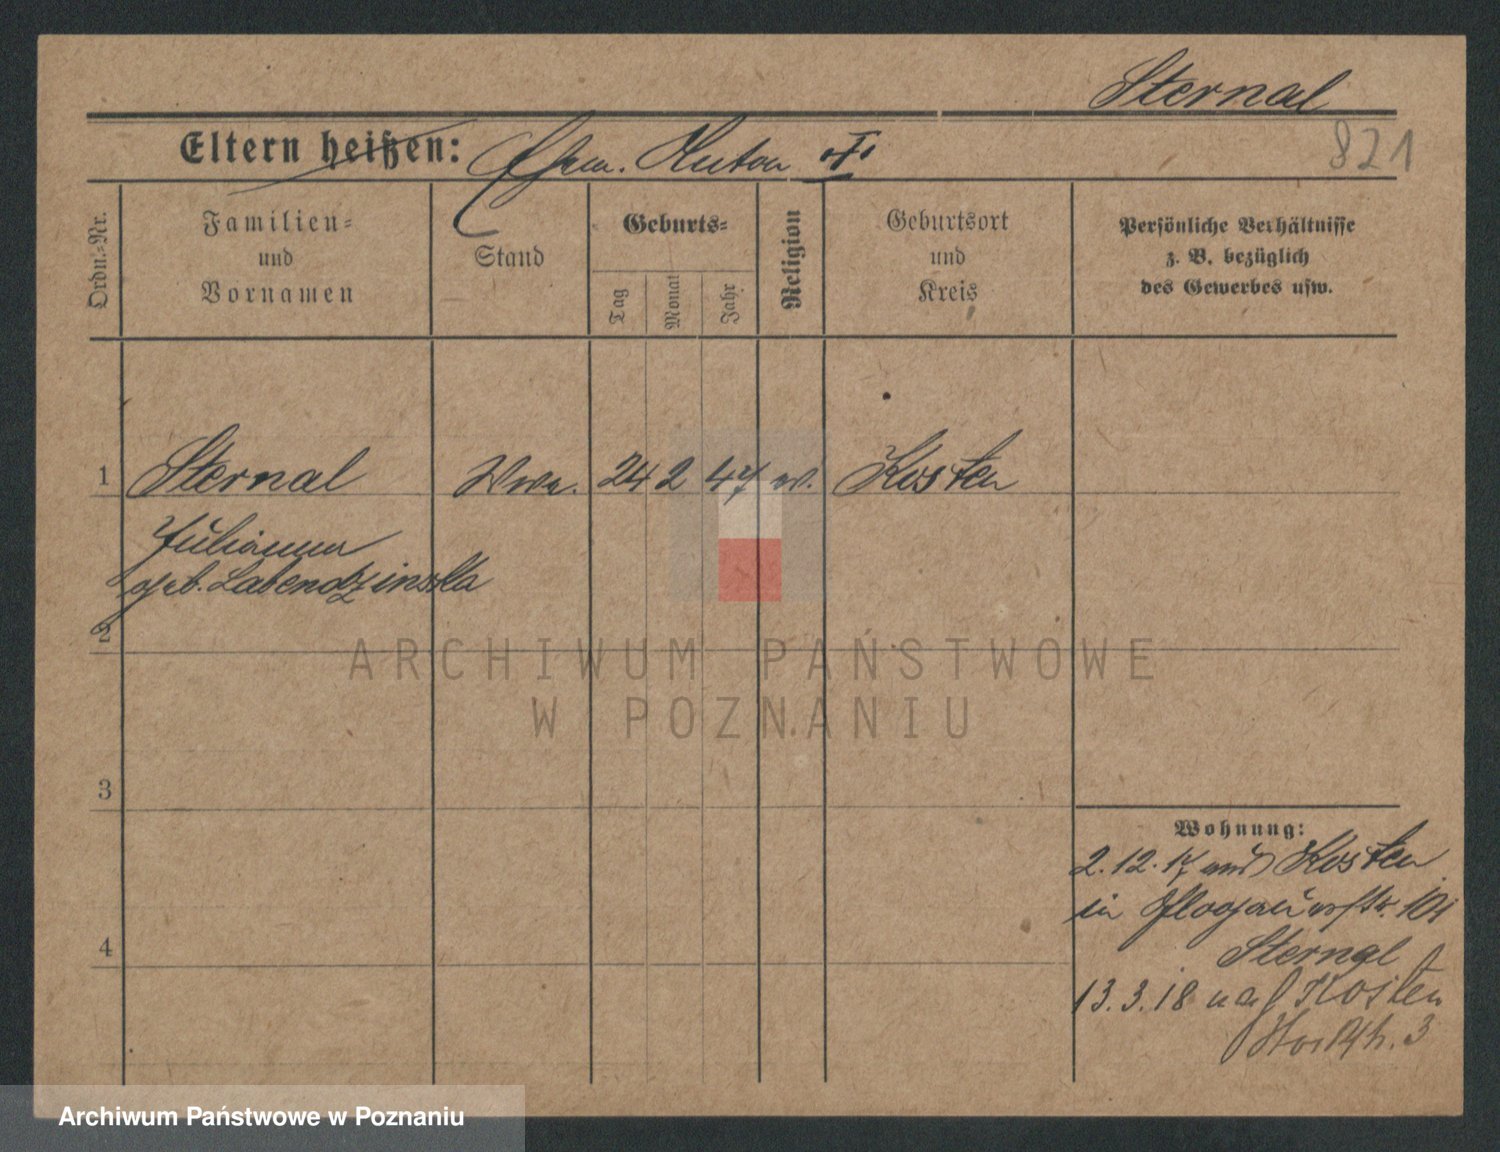 Sternal
821
Eltern heißen: Ehem. Anton †
Ordn.-Nr.
Familien-
und
Vornamen
Stand
Geburts-
Tag
Monat
Jahr
Religion
Geburtsort
und
Kreis
Persönliche Verhältnisse
z. B. bezüglich
des Gewerbes usw.
1 Sternal Wwe. 24 2 47 Kosten
Julianna
geb. Labendzinska
2
ARCHIWUM PAŃSTWOWE
W POZNANIU
3
Wohnung:
2.12.17 aus Kosten
in Glogauerstr. 101
Sternal
4
13.3.18 nach Kosten
3
Archiwum Państwowe w Poznaniu